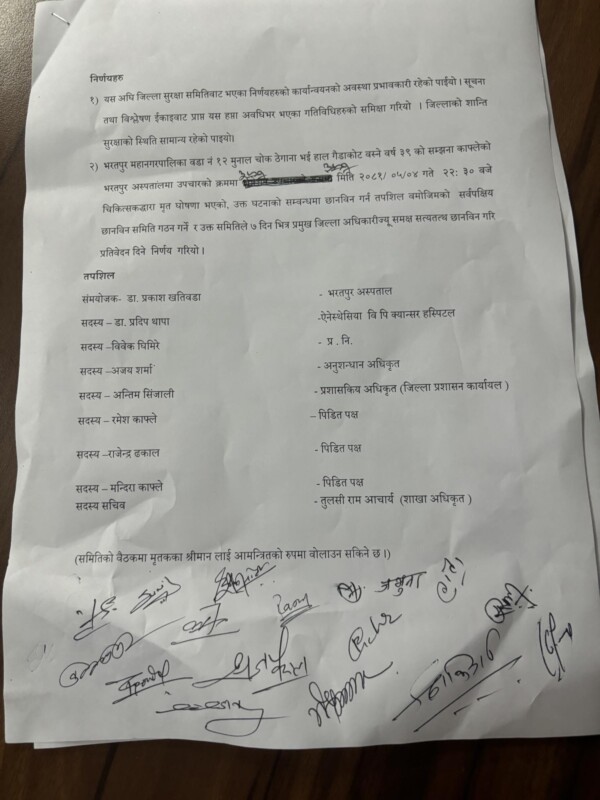 निर्णयहरु
१) यस अघि जिल्ला सुरक्षा समितिवाट भएका निर्णयहरुको कार्यान्वयनको अवस्था प्रभावकारी रहेको पाईयो । सूचना
तथा विश्लेषण ईकाइवाट प्राप्त यस हप्ता अवधिभर भएका गतिविधिहरुको समिक्षा गरियो । जिल्लाको शान्ति
सुरक्षाको स्थिति सामान्य रहेको पाइयो।
२) भरतपुर महानगरपालिका वडा नं १२ मुनाल चोक ठेगाना भई हाल गैडाकोट वस्ने वर्ष ३९ को सम्झना काफ्लेको
भरतपुर अस्पतालमा उपचारको क्रममा मिति २०८१/ ०५/०४ गते २२: ३० बजे
चिकित्सकद्धारा मृत घोषणा भएको, उक्त घटनाको सम्वन्धमा छानविन गर्न तपशिल वमोजिमको सर्वपक्षिय
छानविन समिति गठन गर्ने र उक्त समितिले ७ दिन भित्र प्रमुख जिल्ला अधिकारीज्यू समक्ष सत्यतथ्थ छानविन गरि
प्रतिवेदन दिने निर्णय गरियो ।
तपशिल
संमयोजक- डा. प्रकाश खतिवडा - भरतपुर अस्पताल
सदस्य – डा. प्रदिप थापा -ऐनेस्थेसिया वि पि क्यान्सर हस्पिटल
सदस्य –विवेक घिमिरे - प्र . नि.
सदस्य –अजय शर्मा - अनुशन्धान अधिकृत
सदस्य – अन्तिम सिंजाली - प्रशासकिय अधिकृत (जिल्ला प्रशासन कार्यायल )
सदस्य – रमेश काफ्ले – पिडित पक्ष
सदस्य –राजेन्द्र ढकाल - पिडित पक्ष
सदस्य – मन्दिरा काफ्ले - पिडित पक्ष
सदस्य सचिव - तुलसी राम आचार्य (शाखा अधिकृत )
(समितिको वैठकमा मृतकका श्रीमान लाई आमन्त्रितको रुपमा वोलाउन सकिने छ ।)
जमुना